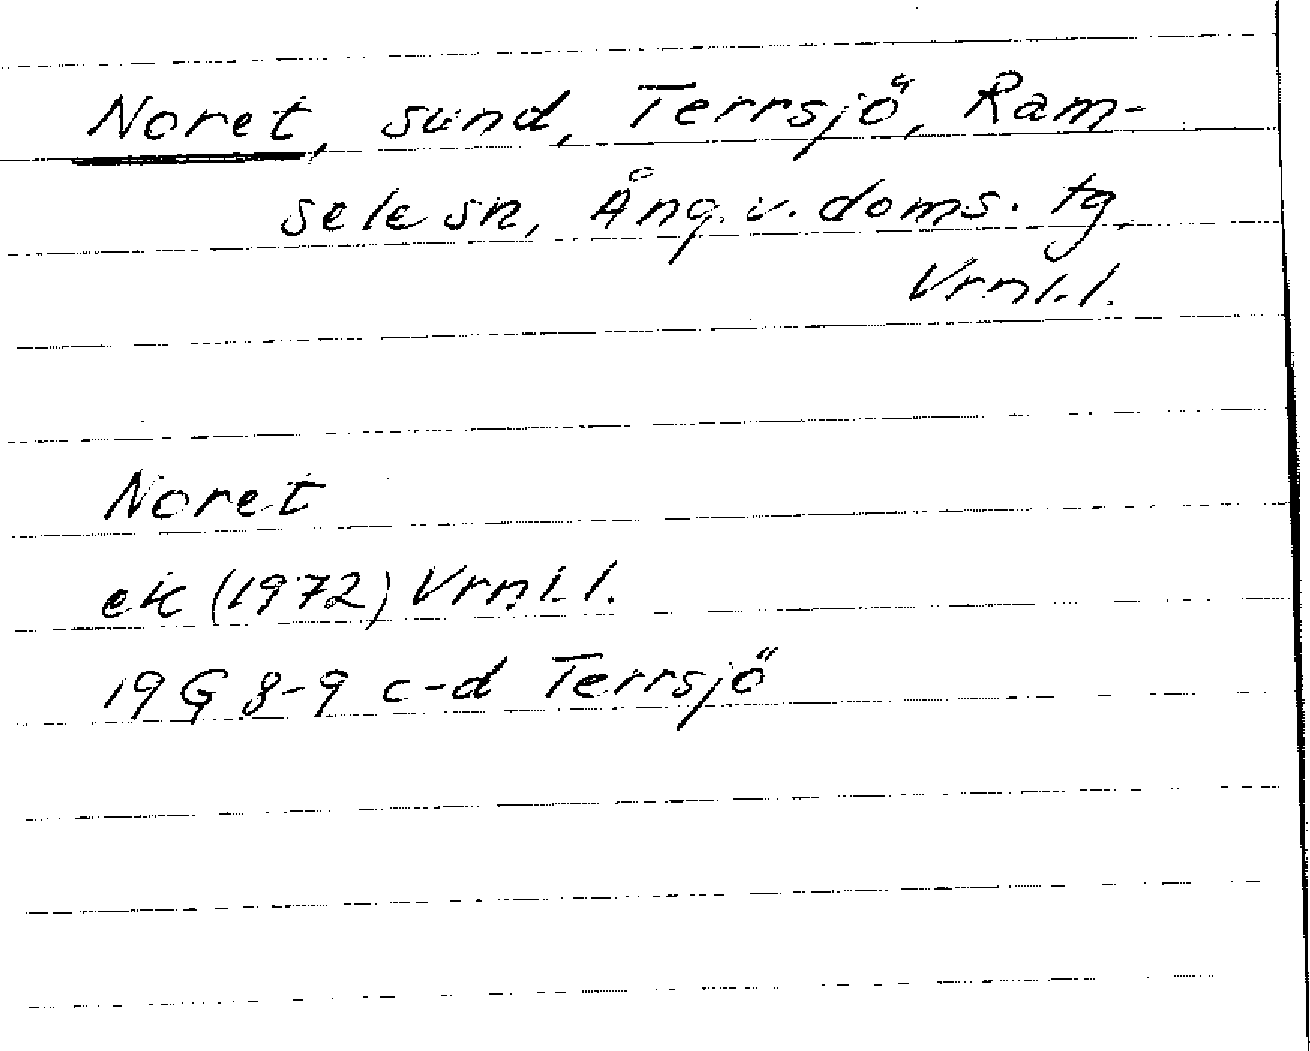 Noret, sund, Terrsjö, Ram-
sele sn, Ång. v. doms. tg,
Vrnl. l.
Noret
ek (1972) Vrnl. l.
19 G 8-9 c-d Terrsjö